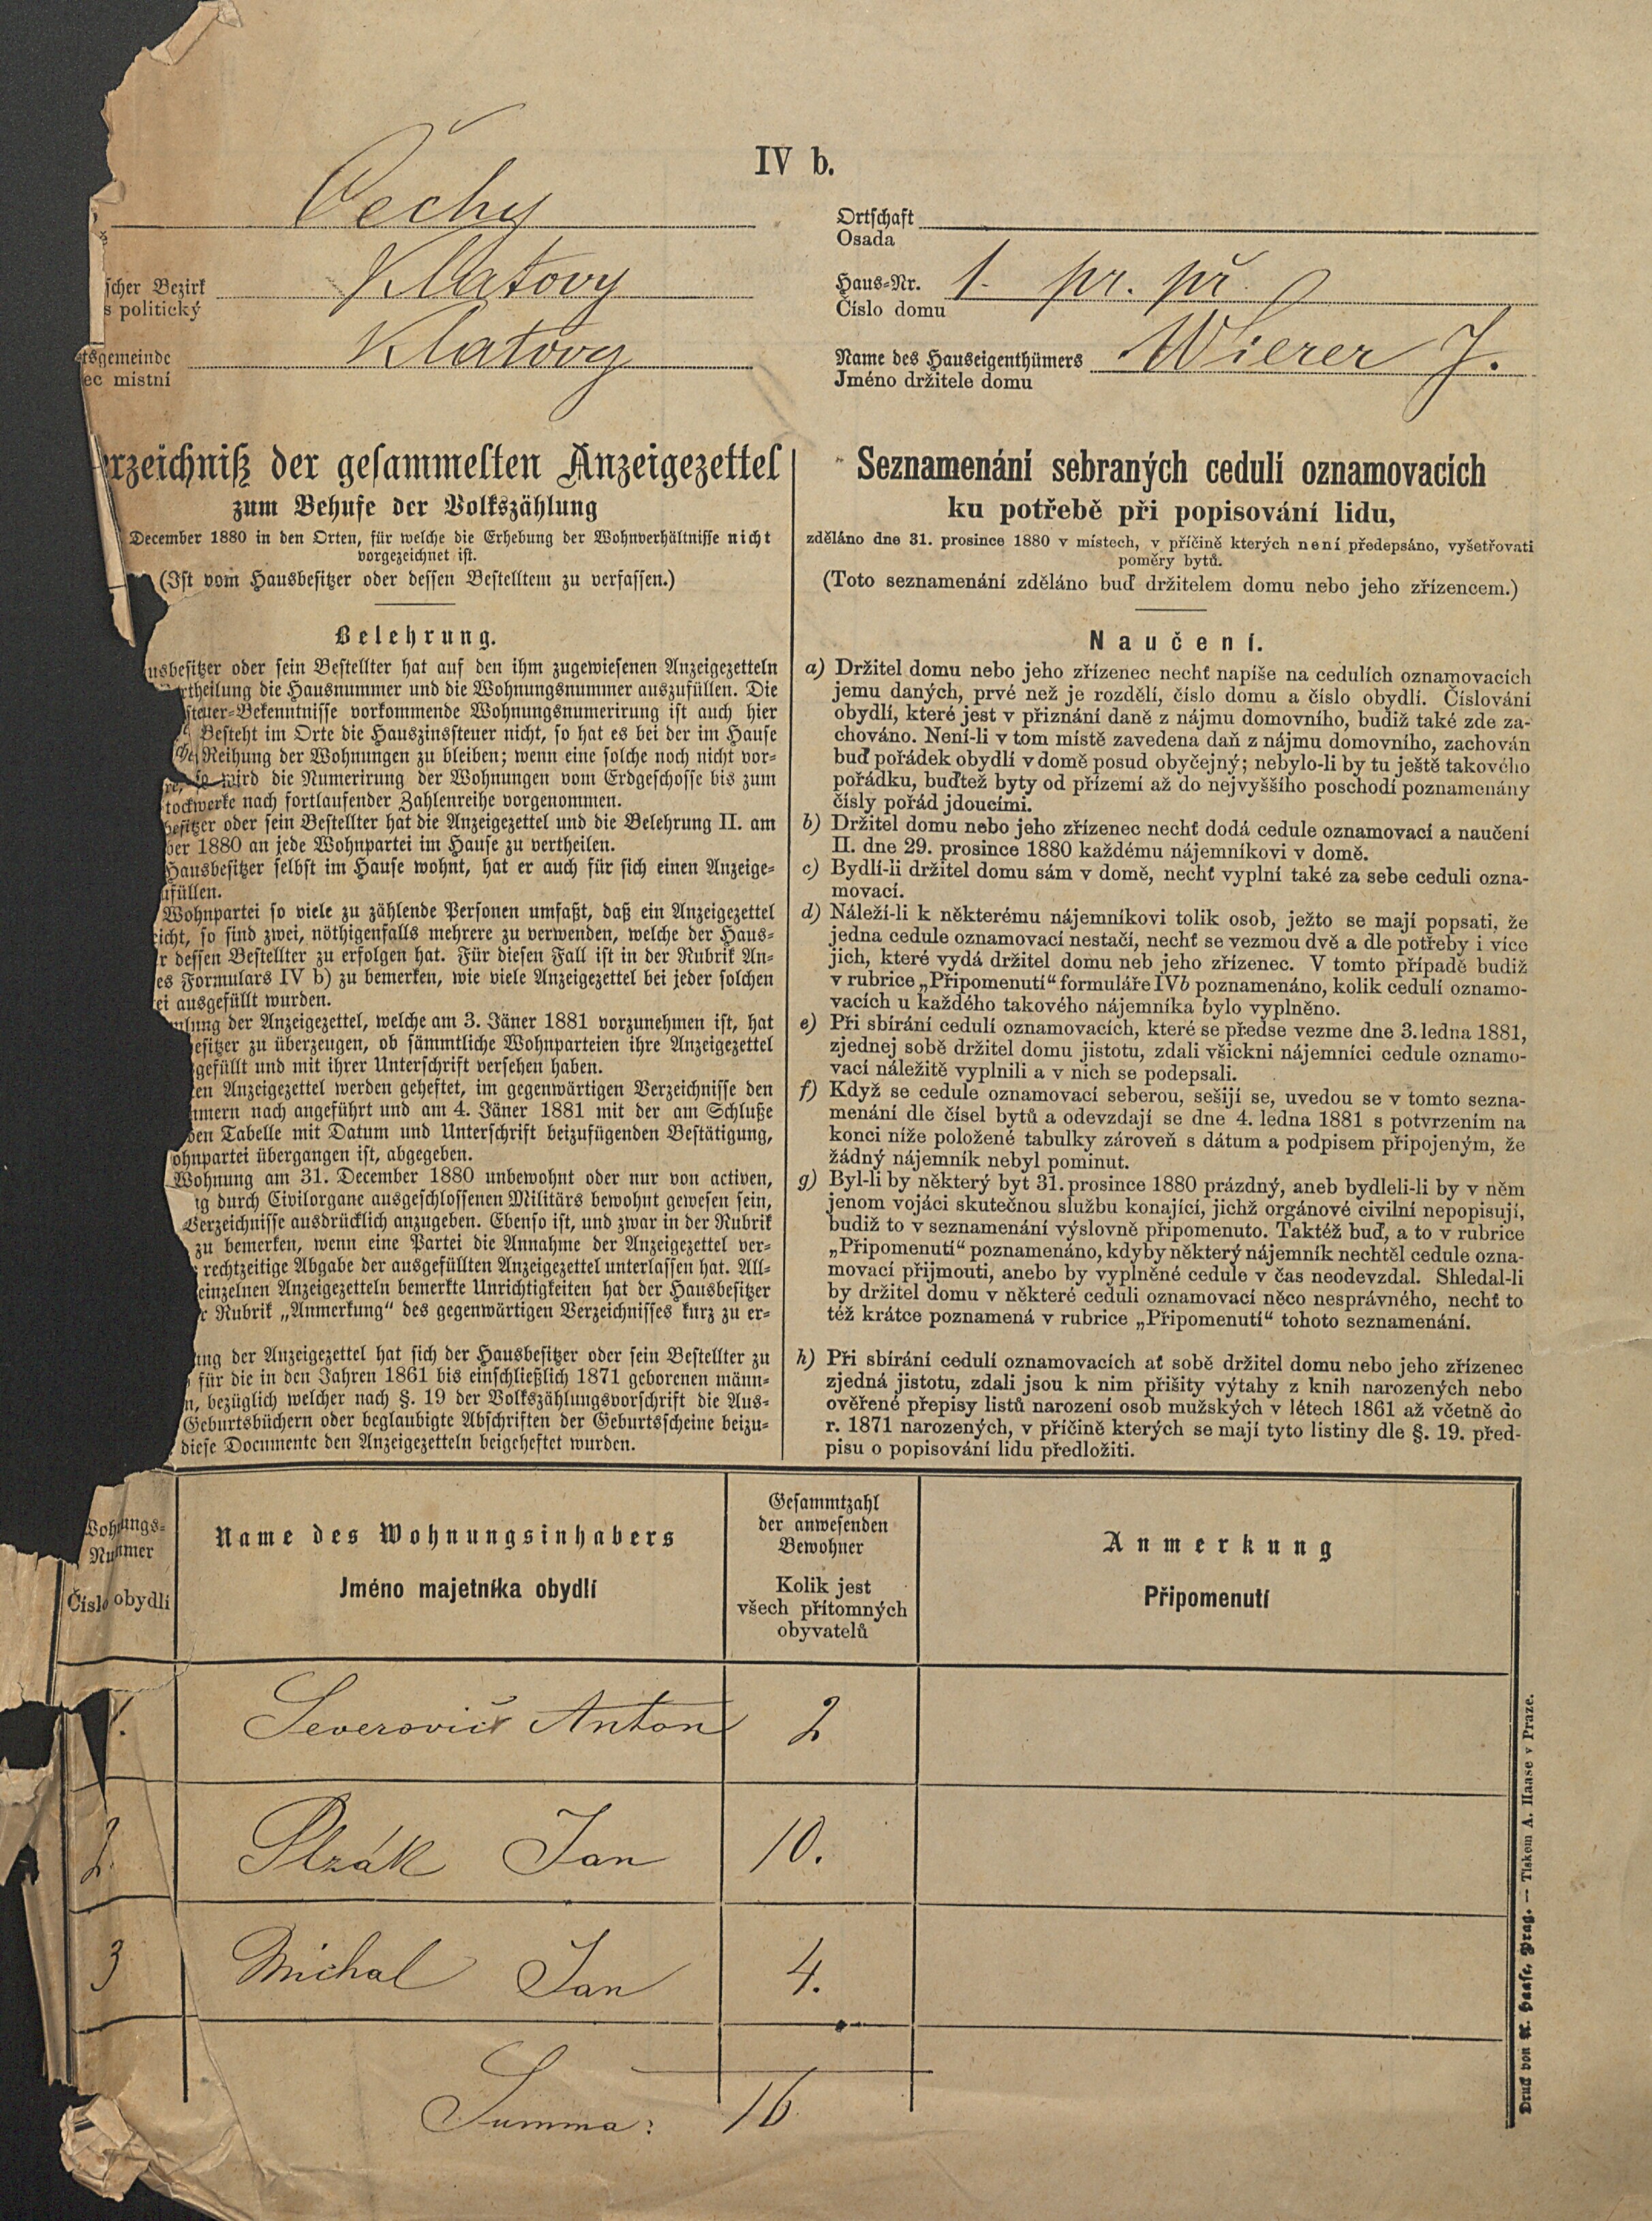 IV b.
Čechy
scher Bezirk
s politický
Klatovy
tsgemeinde
ec místní
Klatovy
Ortschaft
Osada
Haus-Nr.
Číslo domu
1. pr. př.
Name des Hauseigenthümers
Jméno držitele domu
Wierer J.
rzeichniß der gesammelten Anzeigezettel
zum Behufe der Volkszählung
December 1880 in den Orten, für welche die Erhebung der Wohnverhältnisse nicht
vorgezeichnet ist.
(Ist vom Hausbesitzer oder dessen Bestelltem zu verfassen.)
Belehrung.
usbesitzer oder sein Bestellter hat auf den ihm zugewiesenen Anzeigezetteln
rtheilung die Hausnummer und die Wohnungsnummer auszufüllen. Die
steuer-Bekenntnisse vorkommende Wohnungsnumerirung ist auch hier
Besteht im Orte die Hauszinssteuer nicht, so hat es bei der im Hause
che Reihung der Wohnungen zu bleiben; wenn eine solche noch nicht vor-
re, so wird die Numerirung der Wohnungen vom Erdgeschosse bis zum
tockwerke nach fortlaufender Zahlenreihe vorgenommen.
besitzer oder sein Bestellter hat die Anzeigezettel und die Belehrung II. am
ber 1880 an jede Wohnpartei im Hause zu vertheilen.
Hausbesitzer selbst im Hause wohnt, hat er auch für sich einen Anzeige-
ufüllen.
Wohnpartei so viele zu zählende Personen umfaßt, daß ein Anzeigezettel
icht, so sind zwei, nöthigenfalls mehrere zu verwenden, welche der Haus-
r dessen Bestellter zu erfolgen hat. Für diesen Fall ist in der Rubrik An-
es Formulars IV b) zu bemerken, wie viele Anzeigezettel bei jeder solchen
ei ausgefüllt wurden.
mlung der Anzeigezettel, welche am 3. Jäner 1881 vorzunehmen ist, hat
esitzer zu überzeugen, ob sämmtliche Wohnparteien ihre Anzeigezettel
gefüllt und mit ihrer Unterschrift versehen haben.
en Anzeigezettel werden geheftet, im gegenwärtigen Verzeichnisse den
mmern nach angeführt und am 4. Jäner 1881 mit der am Schluße
den Tabelle mit Datum und Unterschrift beizufügenden Bestätigung,
ohnpartei übergangen ist, abgegeben.
Wohnung am 31. December 1880 unbewohnt oder nur von activen,
ig durch Civilorgane ausgeschlossenen Militärs bewohnt gewesen sein,
Verzeichnisse ausdrücklich anzugeben. Ebenso ist, und zwar in der Rubrik
zu bemerken, wenn eine Partei die Annahme der Anzeigezettel ver-
rechtzeitige Abgabe der ausgefüllten Anzeigezettel unterlassen hat. All-
einzelnen Anzeigezetteln bemerkte Unrichtigkeiten hat der Hausbesitzer
r Rubrik „Anmerkung“ des gegenwärtigen Verzeichnisses kurz zu er-
ung der Anzeigezettel hat sich der Hausbesitzer oder sein Bestellter zu
für die in den Jahren 1861 bis einschließlich 1871 geborenen männ-
n, bezüglich welcher nach §. 19 der Volkszählungsvorschrift die Aus-
Geburtsbüchern oder beglaubigte Abschriften der Geburtsscheine beizu-
diese Documente den Anzeigezetteln beigeheftet wurden.
Seznamenání sebraných cedulí oznamovacích
ku potřebě při popisování lidu,
zděláno dne 31. prosince 1880 v místech, v příčině kterých není předepsáno, vyšetřovati
poměry bytů.
(Toto seznamenání zděláno buď držitelem domu nebo jeho zřízencem.)
Naučení.
a) Držitel domu nebo jeho zřízenec nechť napíše na cedulích oznamovacích
jemu daných, prvé než je rozdělí, číslo domu a číslo obydlí. Číslování
obydlí, které jest v přiznání daně z nájmu domovního, budiž také zde za-
chováno. Není-li v tom místě zavedena daň z nájmu domovního, zachován
buď pořádek obydlí v domě posud obyčejný; nebylo-li by tu ještě takového
pořádku, buďtež byty od přízemí až do nejvyššího poschodí poznamenány
čísly pořád jdoucími.
b) Držitel domu nebo jeho zřízenec nechť dodá cedule oznamovací a naučení
II. dne 29. prosince 1880 každému nájemníkovi v domě.
c) Bydlí-li držitel domu sám v domě, nechť vyplní také za sebe ceduli ozna-
movací.
d) Náleží-li k některému nájemníkovi tolik osob, ježto se mají popsati, že
jedna cedule oznamovací nestačí, nechť se vezmou dvě a dle potřeby i více
jich, které vydá držitel domu neb jeho zřízenec. V tomto případě budiž
v rubrice „Připomenutí“ formuláře IVb poznamenáno, kolik cedulí oznamo-
vacích u každého takového nájemníka bylo vyplněno.
e) Při sbírání cedulí oznamovacích, které se předse vezme dne 3. ledna 1881,
zjednej sobě držitel domu jistotu, zdali všickni nájemníci cedule oznamo-
vací náležitě vyplnili a v nich se podepsali.
f) Když se cedule oznamovací seberou, sešijí se, uvedou se v tomto sezna-
menání dle čísel bytů a odevzdají se dne 4. ledna 1881 s potvrzením na
konci níže položené tabulky zároveň s dátum a podpisem připojeným, že
žádný nájemník nebyl pominut.
g) Byl-li by některý byt 31. prosince 1880 prázdný, aneb bydleli-li by v něm
jenom vojáci skutečnou službu konající, jichž orgánové civilní nepopisují,
budiž to v seznamenání výslovně připomenuto. Taktéž buď, a to v rubrice
„Připomenutí“ poznamenáno, kdyby některý nájemník nechtěl cedule ozna-
movací přijmouti, anebo by vyplněné cedule v čas neodevzdal. Shledal-li
by držitel domu v některé ceduli oznamovací něco nesprávného, nechť to
též krátce poznamená v rubrice „Připomenutí“ tohoto seznamenání.
h) Při sbírání cedulí oznamovacích ať sobě držitel domu nebo jeho zřízenec
zjedná jistotu, zdali jsou k nim přišity výtahy z knih narozených nebo
ověřené přepisy listů narození osob mužských v létech 1861 až včetně do
r. 1871 narozených, v příčině kterých se mají tyto listiny dle §. 19. před-
pisu o popisování lidu předložiti.
Wohnungs-
Nummer
Číslo obydlí
Name des Wohnungsinhabers
Jméno majetníka obydlí
Gesammtzahl
der anwesenden
Bewohner
Kolik jest
všech přítomných
obyvatelů
Anmerkung
Připomenutí
1. Severovič Anton 2
2. Plzák Jan 10.
3 Michal Jan 4.
Summa: 16
Druck von A. Haase, Prag. — Tiskem A. Haase v Praze.